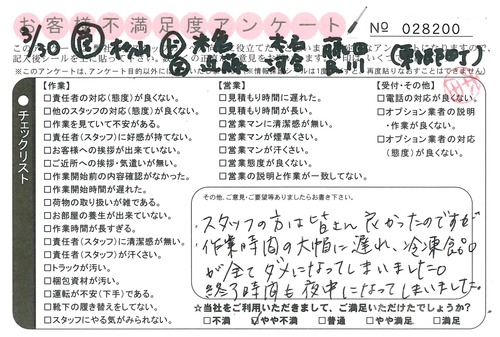 お客様不満足度アンケート
№ 028200
3/30
松山
※このアンケートは、アンケート目的以外には
チェックリスト
【作業】
□責任者の対応(態度)が良くない。
□他のスタッフの対応(態度)が良くない。
□作業を見ていて不安がある。
□責任者(スタッフ)に好感が持てない。
□お客様への挨拶が出来ていない。
□ご近所への挨拶・気遣いが無い。
□作業開始前の内容確認がなかった。
□作業開始時間が遅れた。
□荷物の取り扱いが雑である。
□お部屋の養生が出来ていない。
□作業時間が長すぎる。
□責任者(スタッフ)に清潔感が無い。
□責任者(スタッフ)が汗くさい。
□トラックが汚い。
□梱包資材が汚い。
□運転が不安(下手)である。
□靴下の履き替えをしてない。
□スタッフにやる気がみられない。
【営業】
□見積もり時間に遅れた。
□見積もり時間が長い。
□営業マンに清潔感が無い。
□営業マンが煙草くさい。
□営業マンが汗くさい。
□営業態度が良くない。
□営業の説明と作業が一致してない。
【受付・その他】
□電話の対応が良くない。
□オプション業者の説明
・作業が良くない。
□オプション業者の対応
(態度)が良くない。
その他、ご意見・ご要望等ありましたらお書き下さい。
スタッフの方は皆さん良かったのですが
作業時間の大幅に遅れ、冷凍食品
が全てダメになってしまいました。
終了時間も夜中になってしまいました。
☆当社をご利用いただきまして、ご満足いただけたでしょうか?
□不満 □やや不満 □普通 □やや満足 □満足